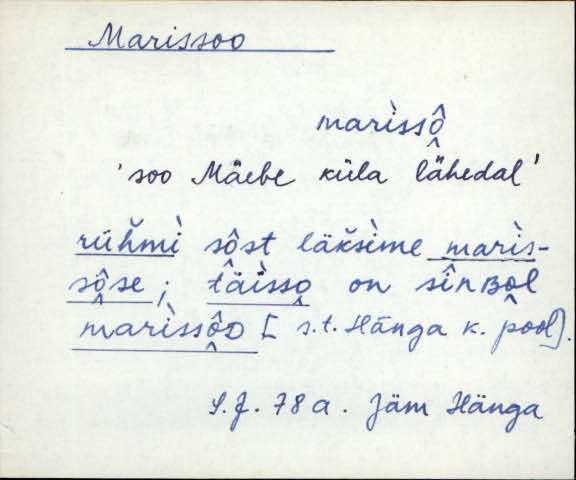 Marissoo
marìssô̭
'soo Mäebe küla lähedal'
rüȟmì sôst läǩsìme marìs-
sô̭se; tä̭ìsso on sînʙo̭l
màrìssô̭D [s.t. Hänga k. pool].
S.J. 78 a. Jäm Hänga